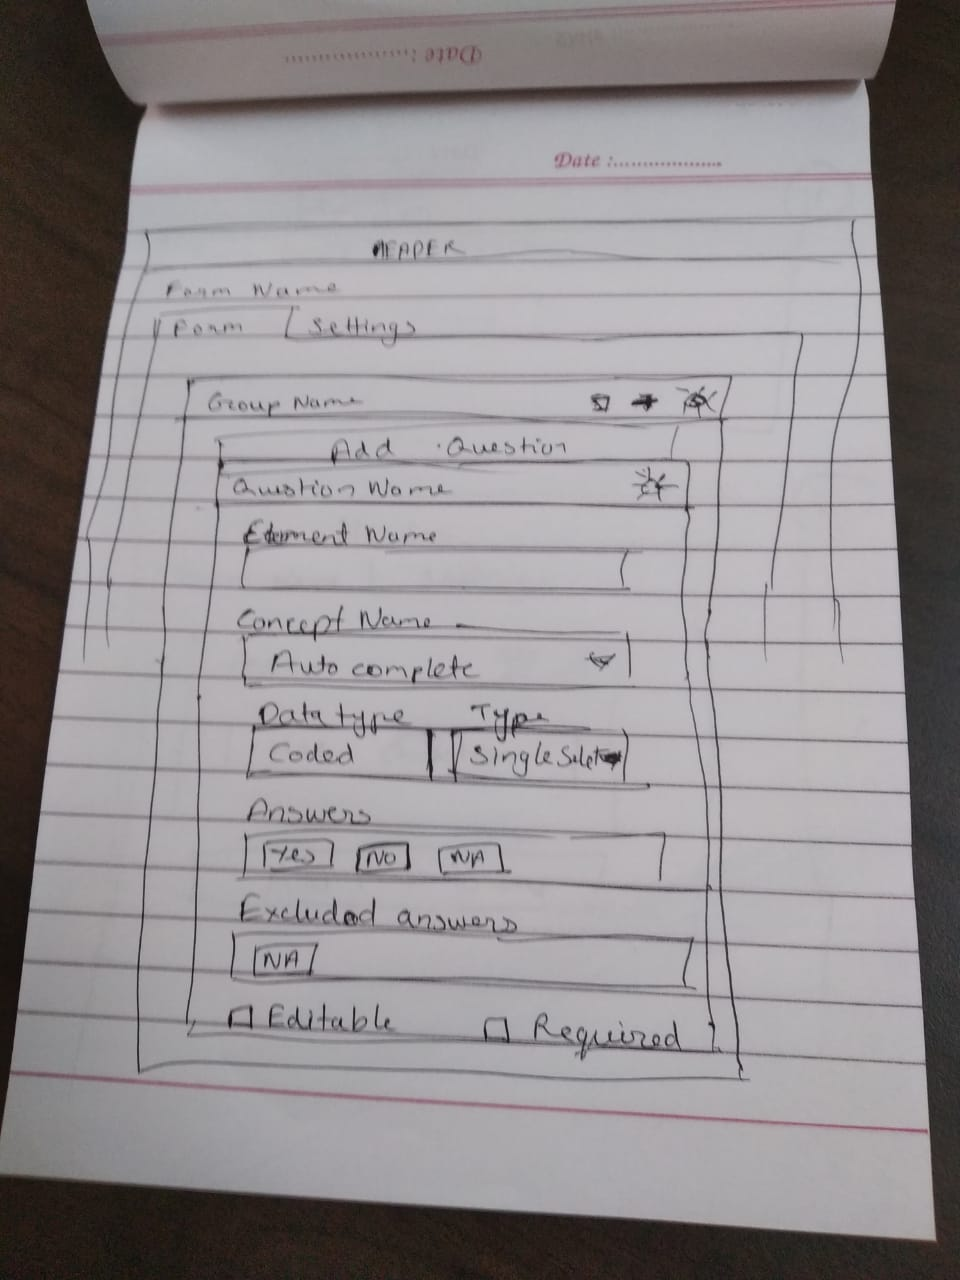 Date
Date :
HEADER
Form Name
Form Settings
Group Name
Add Question
Question Name
Element Name
Concept Name
Auto complete
Datatype Type
Coded Single Select
Answers
Yes NO NA
Excluded answers
NA
Editable Required